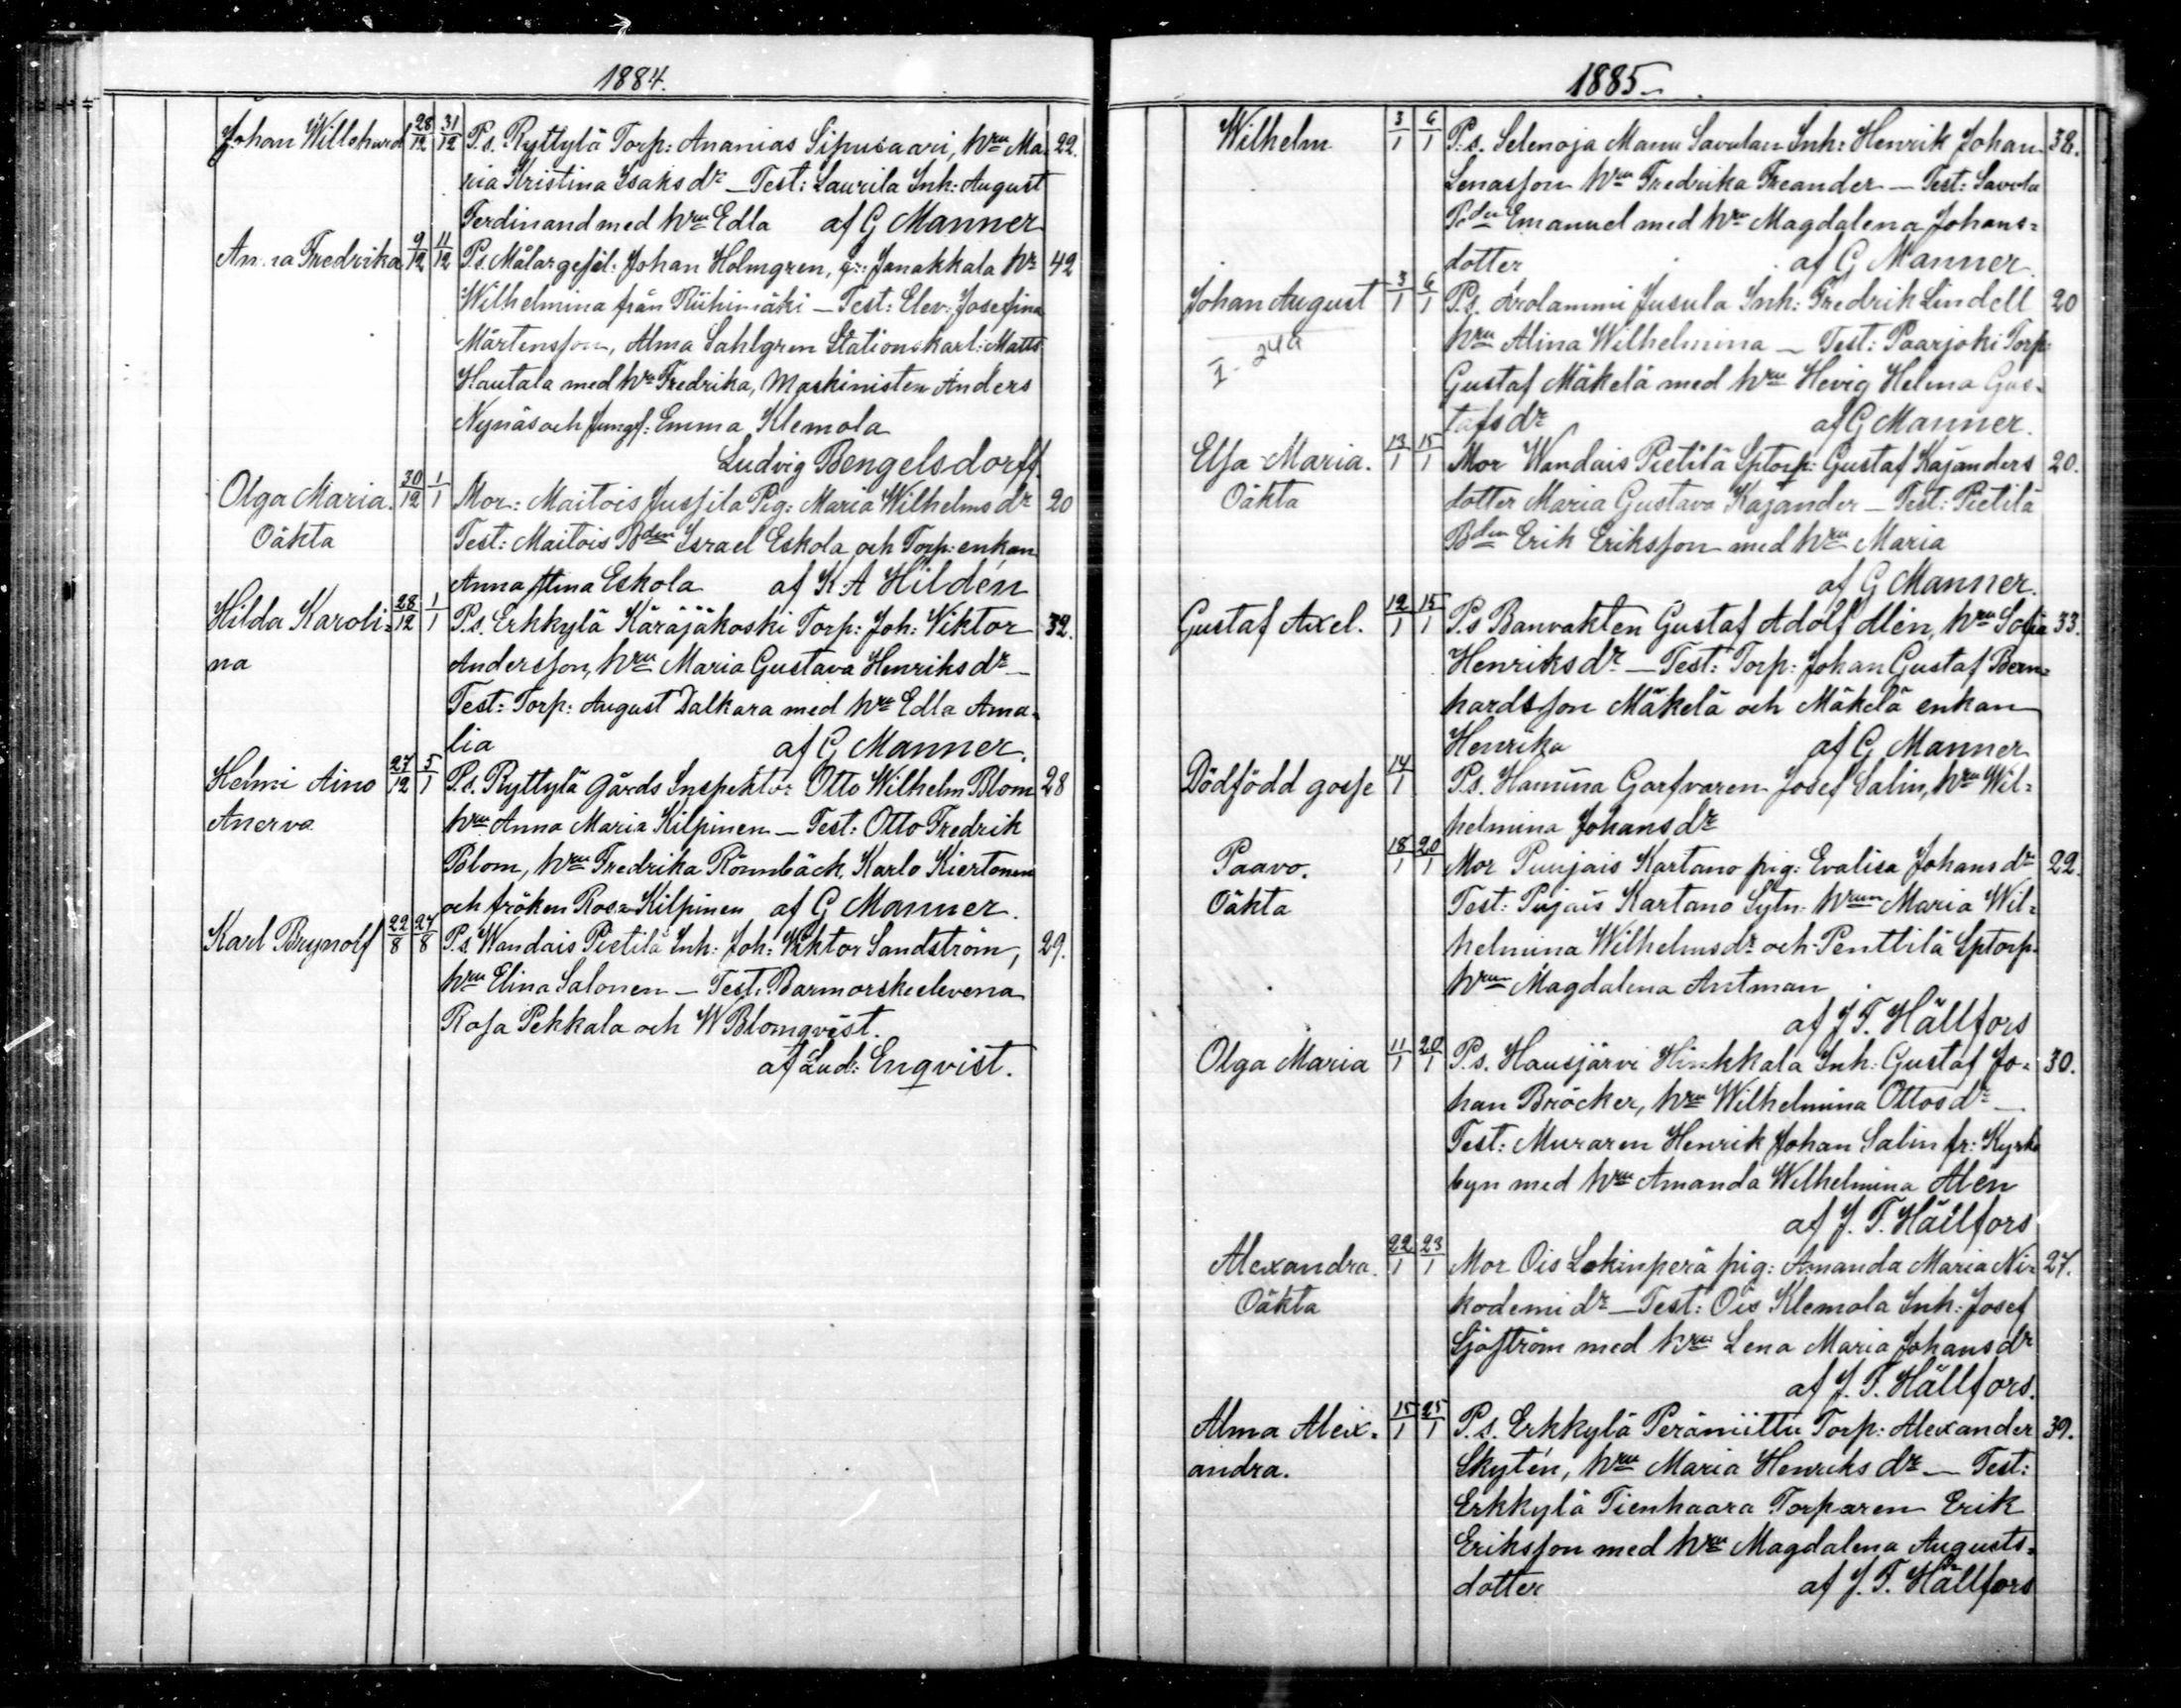 1884.
Johan Willehard 28/12 31/12 P.s. Ryttylä Torp: Ananias Sipusaari, hru Ma- 22.
ria Kristina Isaksdr — Test: Laurila Inh: August
Ferdinand med hru Edla af G Manner
Anna Fredrika 9/12 11/12 P.s. Målargesäl: Johan Holmgren, fr: Janakkala hr 42
Wilhelmina från Riihimäki — Test: Elev: Josefina
Mårtensson, Alma Sahlgren Stationskarl: Matts
Hautala med hru Fredrika, Maskinisten Anders
Nynäs och Jungf: Emma Klemola
Ludvig Bengelsdorff.
Olga Maria. 30/12 1/1 Mor: Maitois Jussila Pig: Maria Wilhelmsdr 20
Oäkta Test: Maitois Bden Israel Eskola och Torp: enkan
Anna Stina Eskola af K. A Hildén
Hilda Karoli= 28/12 1/1 P.s. Erkkylä Käräjäkoski Torp: Joh: Viktor 32.
na Andersson, hru Maria Gustava Henriksdr —
Test: Torp: August Dalkara med hru Edla Ama-
lia af G Manner.
Helmi Aino 27/12 5/1 P.s. Ryttylä gårds Inspektor Otto Wilhelm Blom 28
Anerva hru Anna Maria Kilpinen — Test: Otto Fredrik
Blom, hru Fredrika Rönnbäck, Karlo Kiertonen
och fröken Rosa Kilpinen af G Manner.
Karl Brynolf 22/8 24/8 P.s. Wandais Pietilä Inh: Joh: Viktor Sandström, 29.
hru Elina Salonen — Test: Barmorskeelevena
Rosa Pekkala och W Blomqvist.
af Lud: Enqvist.
1885
Wilhelm 3/1 6/1 P.s. Selenoja Manu Savulan Inh: Henrik Johan 38.
Lenasson hru Fredrika Freander — Test: Savola
Bden Emanuel med hru Magdalena Johans=
dotter af G Manner.
Johan August 3/1 6/1 P.s. Arolammi Jusula Inh: Fredrik Lindell 20
hru Alina Wilhelmina — Test: Paarjoki Torp:
Gustaf Mäkelä med hru Hevig Helena Gus-
tafsdr af G Manner.
Elsa Maria. 13/1 15/1 Mor Wandais Pietilä Sptorp: Gustaf Kajanders 20.
Oäkta dotter Maria Gustava Kajander — Test: Pietilä
Bden Erik Eriksson med hru Maria
af G Manner.
Gustaf Axel. 12/1 15/1 P.s Banvakten Gustaf Adolf Alén, hru Sofia 33.
Henriksdr — Test: Torp: Johan Gustaf Bern=
hardsson Mäkelä och Mäkelä enkan
Henrika af G Manner
Dödfödd gosse 14/1 P.s. Hamina Garfvaren Josef Salin, hru Wil=
helmina Johansdr
Paavo. 18/1 20/1 Mor Puujais Kartano pig: Evalisa Johansdr 22.
Oäkta Test: Pujais Kartano Sytn: hrun Maria Wil=
helmina Wilhelmsdr och Penttilä Sptorp-
hrun Magdalena Antman
af J. F. Hällfors
Olga Maria 11/1 20/1 P.s. Hausjärvi Hinkkala Inh: Gustaf Jo= 30.
han Bröcker, hru Wilhelmina Ottosdr —
Test: Muraren Henrik Johan Salin fr: Kyrko
byn med hru Amanda Wilhelmina Alén
af J. F. Hällfors
Alexandra. 22/1 23/1 Mor Ois Lokinperä pig: Amanda Maria Ni= 27.
Oäkta kodemidr — Test: Ois Klemola Inh: Josef
Sjöström med hru Lena Maria Johansdr
af J. F. Hällfors.
Alma Alex= 15/1 25/1 P.s. Erkkylä Peräniittu Torp: Alexander 39.
andra. Skytén, hru Maria Henriksdr — Test:
Erkkylä Tienhaara Torparen Erik
Eriksson med hru Magdalena Augusts=
dotter af J. F. Hällfors